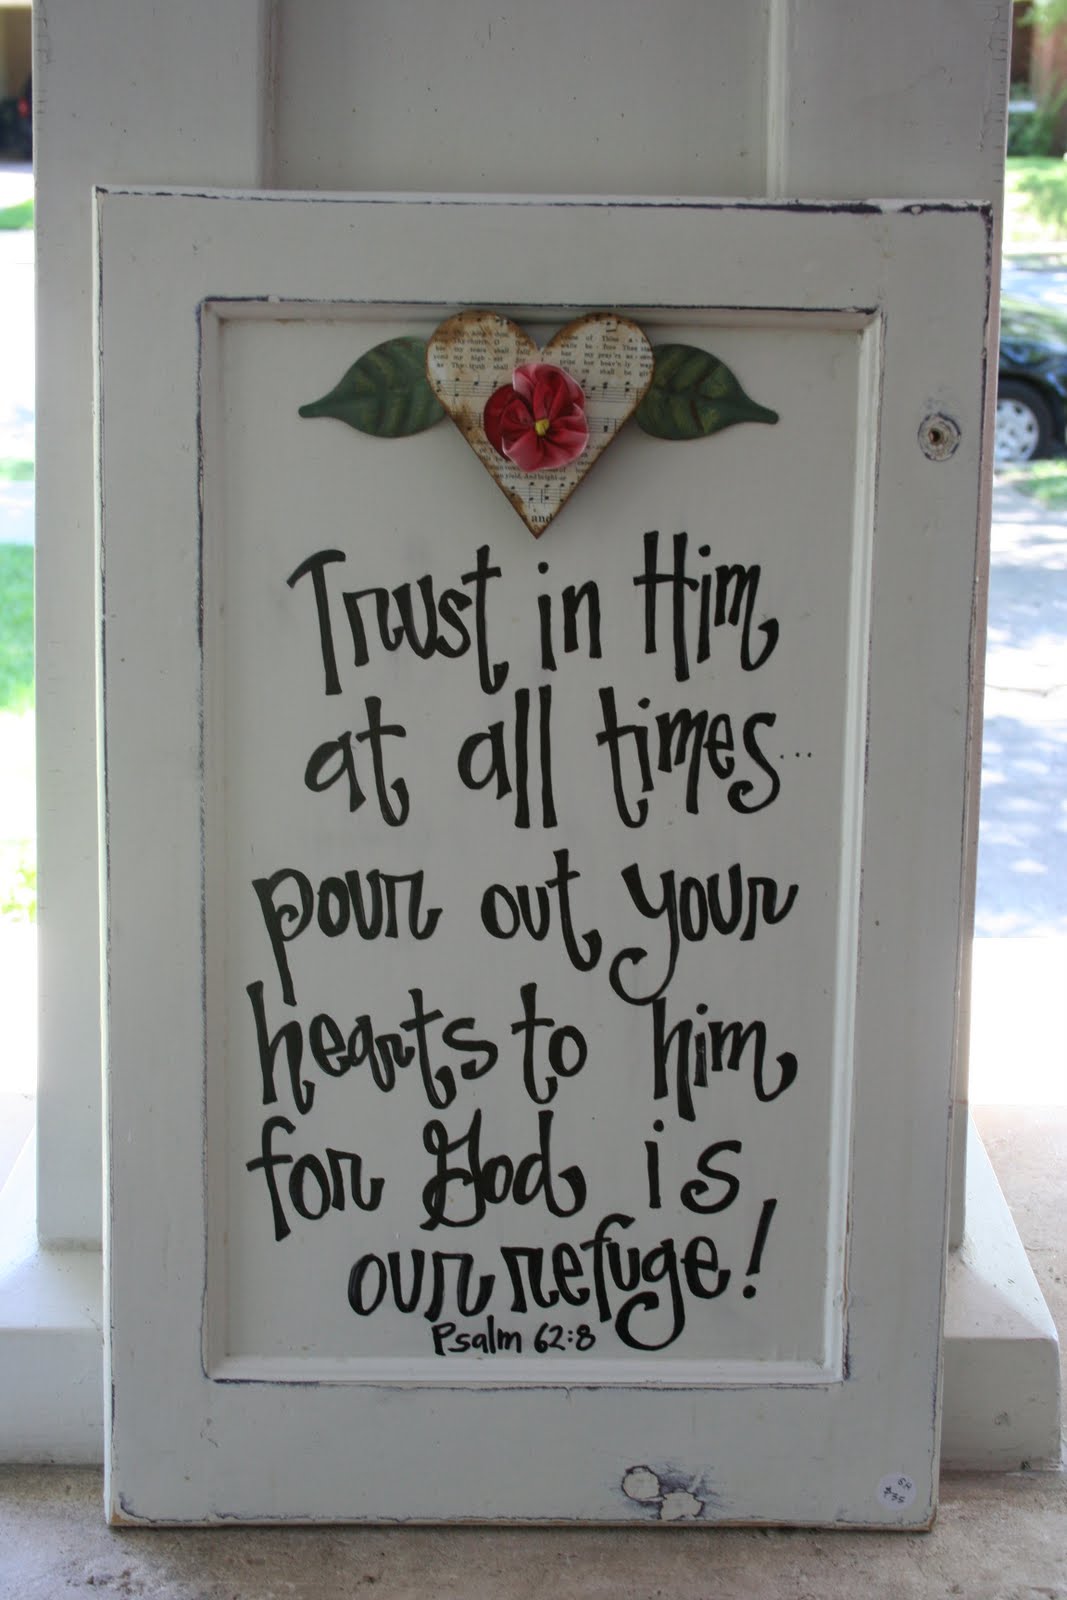 Trust in Him
at all times...
pour out your
hearts to him
for God is
our refuge!
Psalm 62:8
and
$35